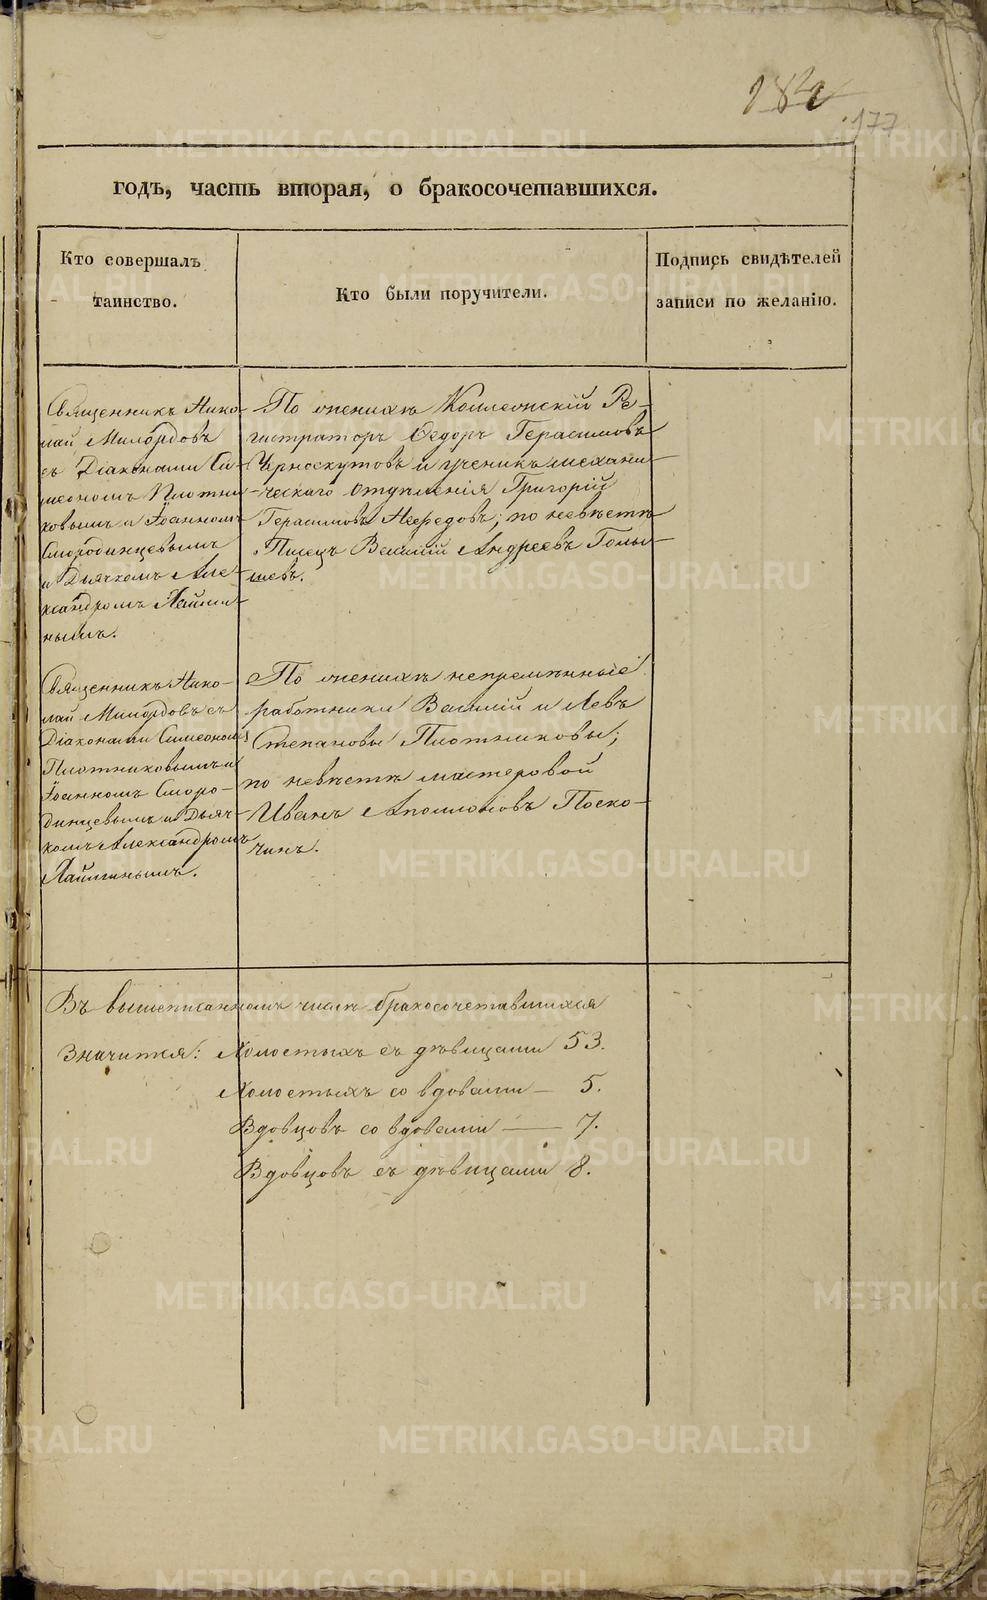 177
годъ, часть вторая, о бракосочетавшихся.
Кто совершалъ
таинство.
Кто были поручители.
Подпись свидѣтелей
записи по желанію.
Священникъ Нико-
лай Милордовъ
съ Діаконами Си-
меономъ Плотни-
ковымъ и Іоанномъ
Смородинцевымъ
и Дьячкомъ Але-
ксандромъ Лаппи-
нымъ.
По женихѣ Коллежскій Ре-
гистраторъ Ѳедоръ Герасимовъ
Черноскутовъ и ученикъ механи-
ческаго отдѣленія Григорій
Герасимовъ по невѣстѣ
Писецъ Василій Андреевъ Голы-
шевъ.
Священникъ Нико-
лай Милордовъ съ
Діаконами Симеономъ
Плотниковымъ и
Іоанномъ Сморо-
динцевымъ и Дьяч-
комъ Александромъ
По женихѣ непремѣнные
работники Василій и Левъ
Степановы Плотниковы;
по невѣстѣ мастеровой
Иванъ Аполлоновъ Поско-
чинъ.
Въ вышеписанномъ числѣ бракосочетавшихся
Значится: Холостыхъ съ дѣвицами 53.
Холостыхъ со вдовами — 5.
Вдовцовъ со вдовами — 7.
Вдовцовъ съ дѣвицами 8.
METRIKI.GASO-URAL.RU